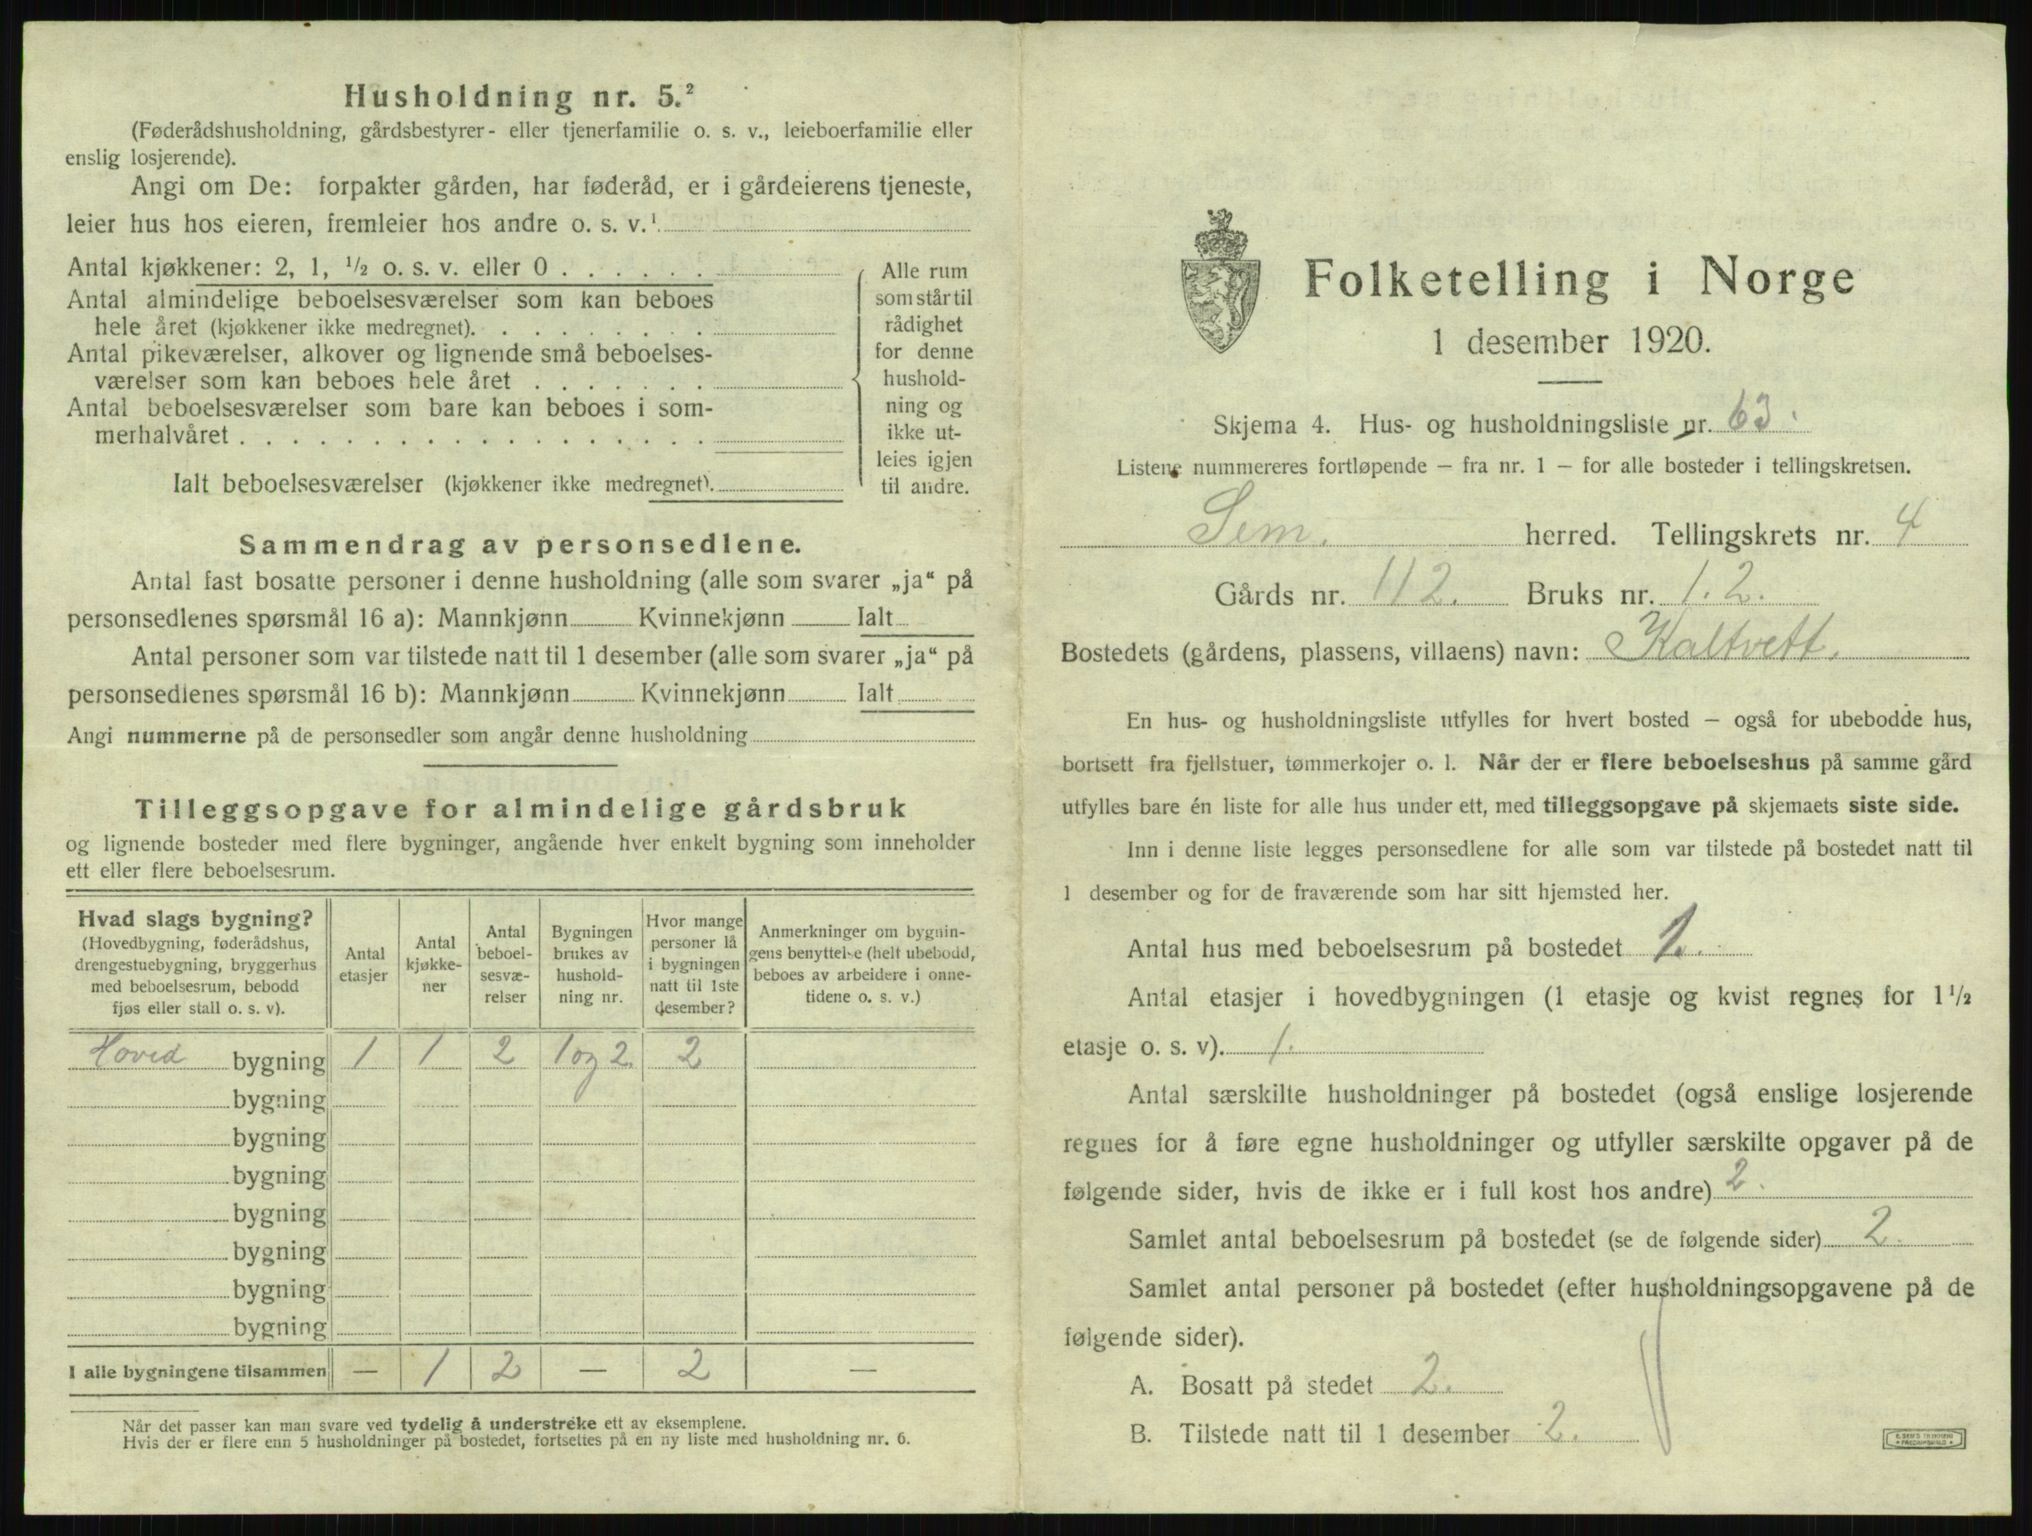 Husholdning nr. 5.²
(Føderådshusholdning, gårdsbestyrer- eller tjenerfamilie o. s. v., leieboerfamilie eller
enslig losjerende).
Angi om De: forpakter gården, har føderåd, er i gårdeierens tjeneste,
leier hus hos eieren, fremleier hos andre o. s. v.¹
Antal kjøkkener: 2, 1, ½ o. s. v. eller 0 . . . . . .
Antal almindelige beboelsesværelser som kan beboes
hele året (kjøkkener ikke medregnet). . . . . . . . .
Antal pikeværelser, alkover og lignende små beboelses-
værelser som kan beboes hele året . . . . . . .
Antal beboelsesværelser som bare kan beboes i som-
merhalvåret . . . . . . . . . . . . . . . . . .
Ialt beboelsesværelser (kjøkkener ikke medregnet).
Alle rum
som står til
rådighet
for denne
hushold-
ning og
ikke ut-
leies igjen
til andre.
Sammendrag av personsedlene.
Antal fast bosatte personer i denne husholdning (alle som svarer „ja“ på
personsedlenes spørsmål 16 a): Mannkjønn Kvinnekjønn Ialt
Antal personer som var tilstede natt til 1 desember (alle som svarer „ja“ på
personsedlenes spørsmål 16 b): Mannkjønn Kvinnekjønn Ialt
Angi nummerne på de personsedler som angår denne husholdning
Tilleggsopgave for almindelige gårdsbruk
og lignende bosteder med flere bygninger, angående hver enkelt bygning som inneholder
ett eller flere beboelsesrum.
Hvad slags bygning?
(Hovedbygning, føderådshus,
drengestuebygning, bryggerhus
med beboelsesrum, bebodd
fjøs eller stall o. s. v).
Antal
etasjer
Antal
kjøkke-
ner
Antal
beboel-
sesvæ-
relser
Bygningen
brukes av
hushold-
ning nr.
Hvor mange
personer lå
i bygningen
natt til 1ste
desember?
Anmerkninger om bygnin-
gens benyttelse (helt ubebodd,
beboes av arbeidere i onne-
tidene o. s. v.)
Hoved bygning 1 1 2 1 og 2. 2
bygning
bygning
bygning
bygning
bygning
bygning
bygning
I alle bygningene tilsammen — 1 2 — 2 —
Når det passer kan man svare ved tydelig å understreke ett av eksemplene.
Hvis der er flere enn 5 husholdninger på bostedet, fortsettes på en ny liste med husholdning nr. 6.
Folketelling i Norge
1 desember 1920.
Skjema 4. Hus- og husholdningsliste nr. 63.
Listene nummereres fortløpende – fra nr. 1 – for alle bosteder i tellingskretsen.
Sem. herred. Tellingskrets nr. 4
Gårds nr. 112. Bruks nr. 1.2.
Bostedets (gårdens, plassens, villaens) navn: Kaltvett.
En hus- og husholdningsliste utfylles for hvert bosted – også for ubebodde hus,
bortsett fra fjellstuer, tømmerkojer o. l. Når der er flere beboelseshus på samme gård
utfylles bare én liste for alle hus under ett, med tilleggsopgave på skjemaets siste side.
Inn i denne liste legges personsedlene for alle som var tilstede på bostedet natt til
1 desember og for de fraværende som har sitt hjemsted her.
Antal hus med beboelsesrum på bostedet 1.
Antal etasjer i hovedbygningen (1 etasje og kvist regnes for 1½
etasje o. s. v). 1.
Antal særskilte husholdninger på bostedet (også enslige losjerende
regnes for å føre egne husholdninger og utfyller særskilte opgaver på de
følgende sider, hvis de ikke er i full kost hos andre) 2.
Samlet antal beboelsesrum på bostedet (se de følgende sider) 2.
Samlet antal personer på bostedet (efter husholdningsopgavene på de
følgende sider).
A. Bosatt på stedet 2.
B. Tilstede natt til 1 desember 2.